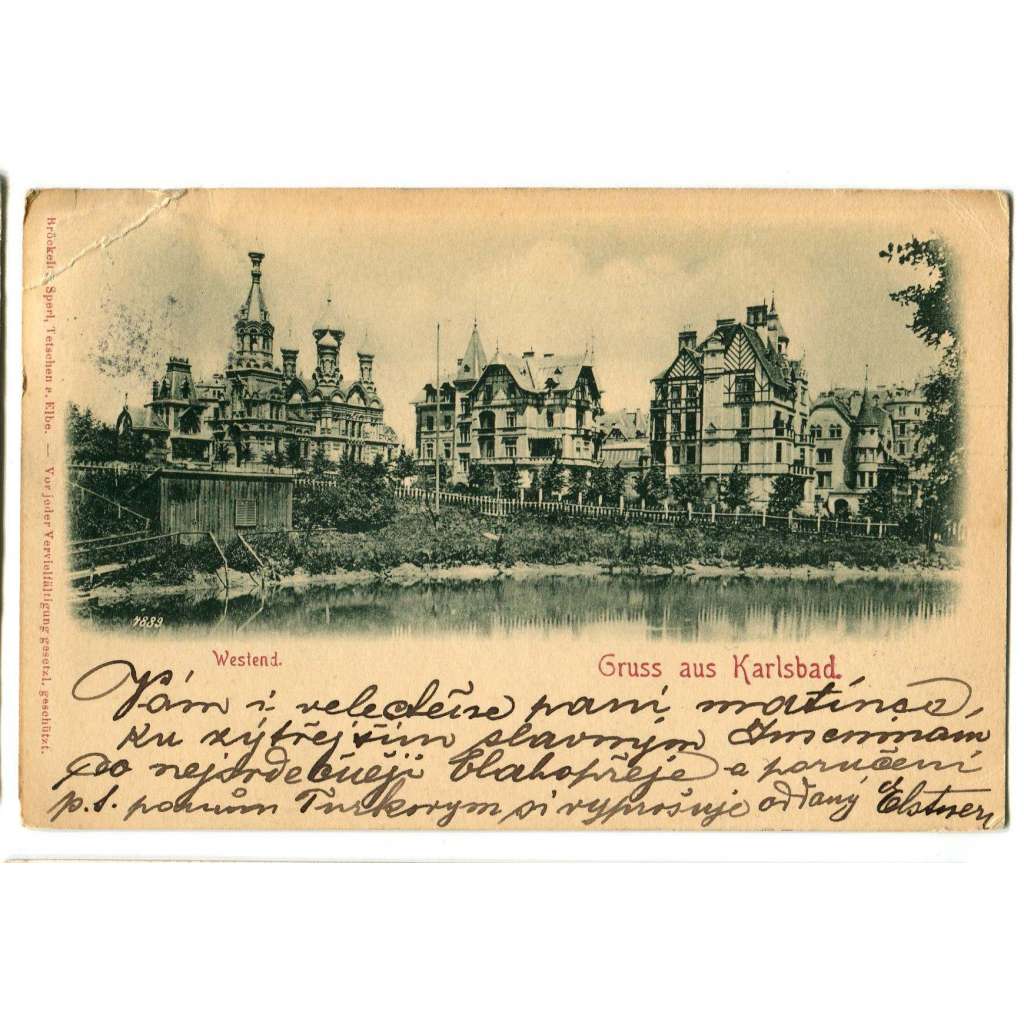 Bröckelt & Sperl, Tetschen a. Elbe. — Vor jeder Vervielfältigung gesetzl. geschützt.
7839
Westend.
Gruss aus Karlsbad.
Vám i velectěné paní matince,
ku zýtřejším slavným Jmeninám
co nejsrdečněji blahopřeje a poručení
p. t. panům Turkovým si vyprošuje oddaný